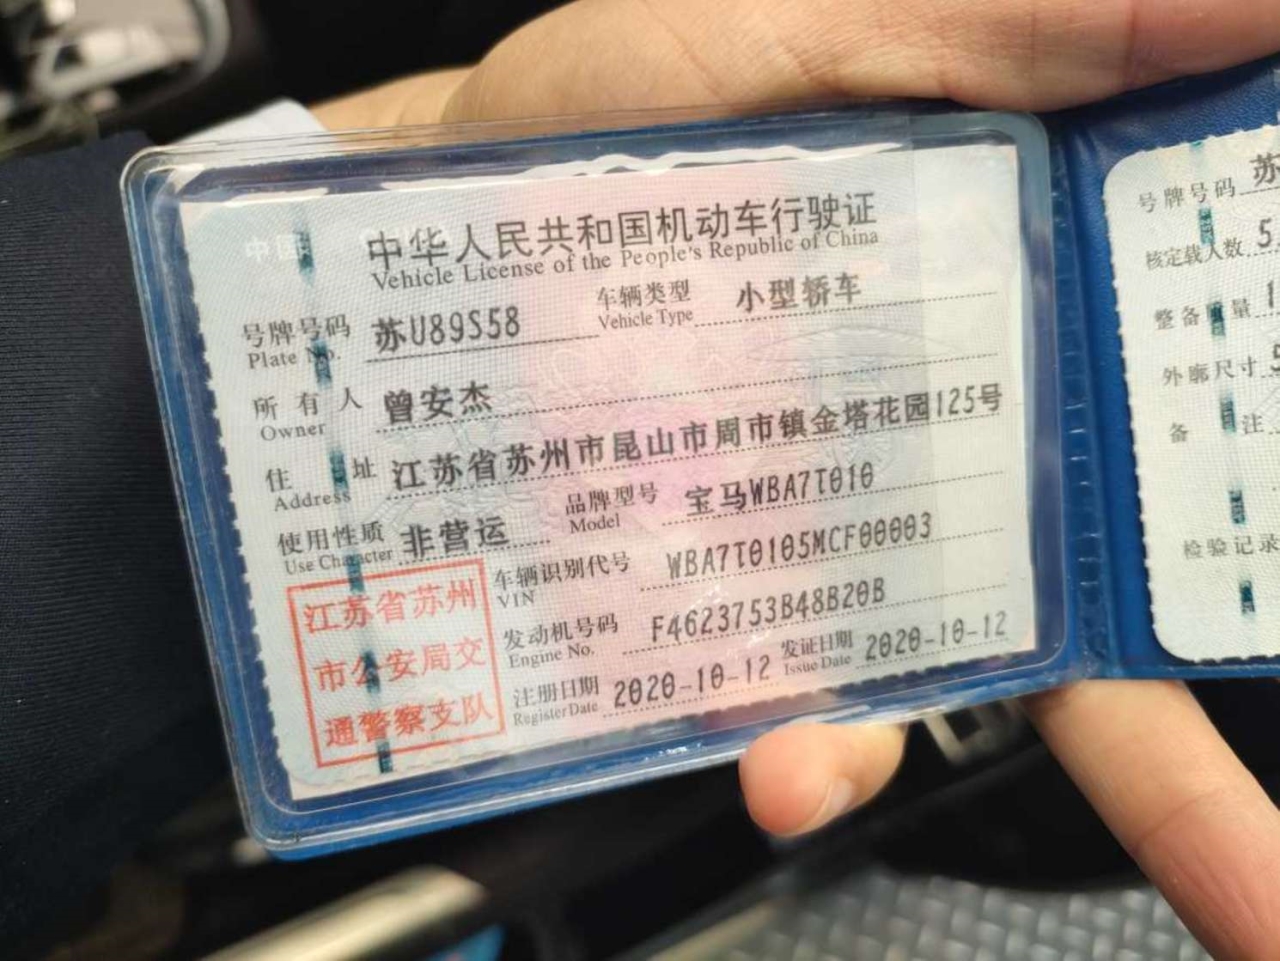 中华人民共和国机动车行驶证
Vehicle License of the People's Republic of China
号牌号码 苏U89S58 车辆类型 小型轿车
Plate No. Vehicle Type
所有人 曾安杰
Owner
住址 江苏省苏州市昆山市周市镇金塔花园125号
Address
使用性质 非营运 品牌型号 宝马WBA7T010
Use Character Model
车辆识别代号 WBA7T0105MCF00003
VIN
发动机号码 F4623753B48B20B
Engine No.
注册日期 2020-10-12 发证日期 2020-10-12
Register Date Issue Date
江苏省苏州
市公安局交
通警察支队
号牌号码 苏
核定载人数 5
整备质量 1
外廓尺寸 5
备注
检验记录